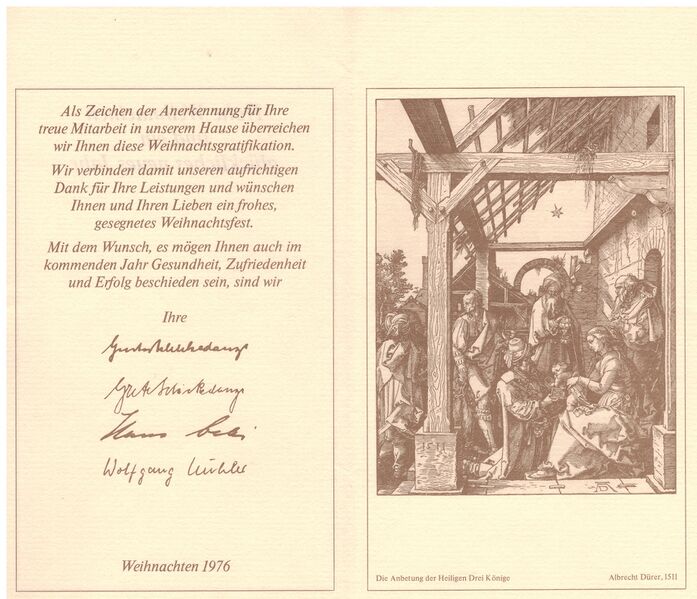 Als Zeichen der Anerkennung für Ihre
treue Mitarbeit in unserem Hause überreichen
wir Ihnen diese Weihnachtsgratifikation.
Wir verbinden damit unseren aufrichtigen
Dank für Ihre Leistungen und wünschen
Ihnen und Ihren Lieben ein frohes,
gesegnetes Weihnachtsfest.
Mit dem Wunsch, es mögen Ihnen auch im
kommenden Jahr Gesundheit, Zufriedenheit
und Erfolg beschieden sein, sind wir
Ihre
Gustav Schickedanz
Grete Schickedanz
Hans Dedi
Wolfgang Bühler
Weihnachten 1976
1511
AD
Die Anbetung der Heiligen Drei Könige
Albrecht Dürer, 1511